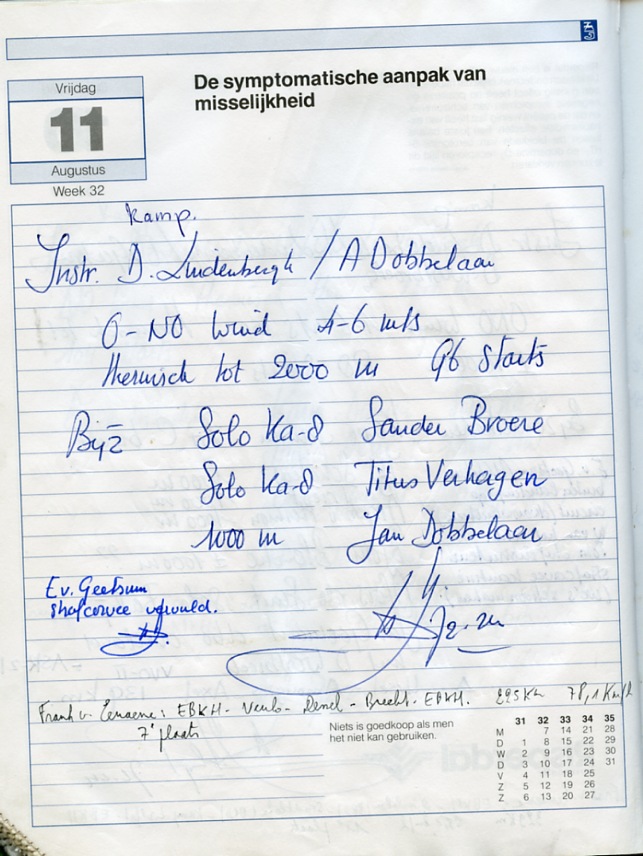 De symptomatische aanpak van
misselijkheid
Vrijdag
11
Augustus
Week 32
Kamp.
Instr. D. Lindenbergh / A Dobbelaar
O-NO wind 4-6 m/s
thermisch tot 2000 m 96 starts
Bijz Solo Ka-8 Sander Broere
Solo Ka-8 Titus Verhagen
1000 m Jan Dobbelaar
E v. Geetsum
strafcorvee vervuld.
Frank v. : EBKH - Venlo - - Brecht - EBKH. 295 Km 78,1 Km/h
7e plaats
Niets is goedkoop als men
het niet kan gebruiken.
31 32 33 34 35
M 7 14 21 28
D 1 8 15 22 29
W 2 9 16 23 30
D 3 10 17 24 31
V 4 11 18 25
Z 5 12 19 26
Z 6 13 20 27